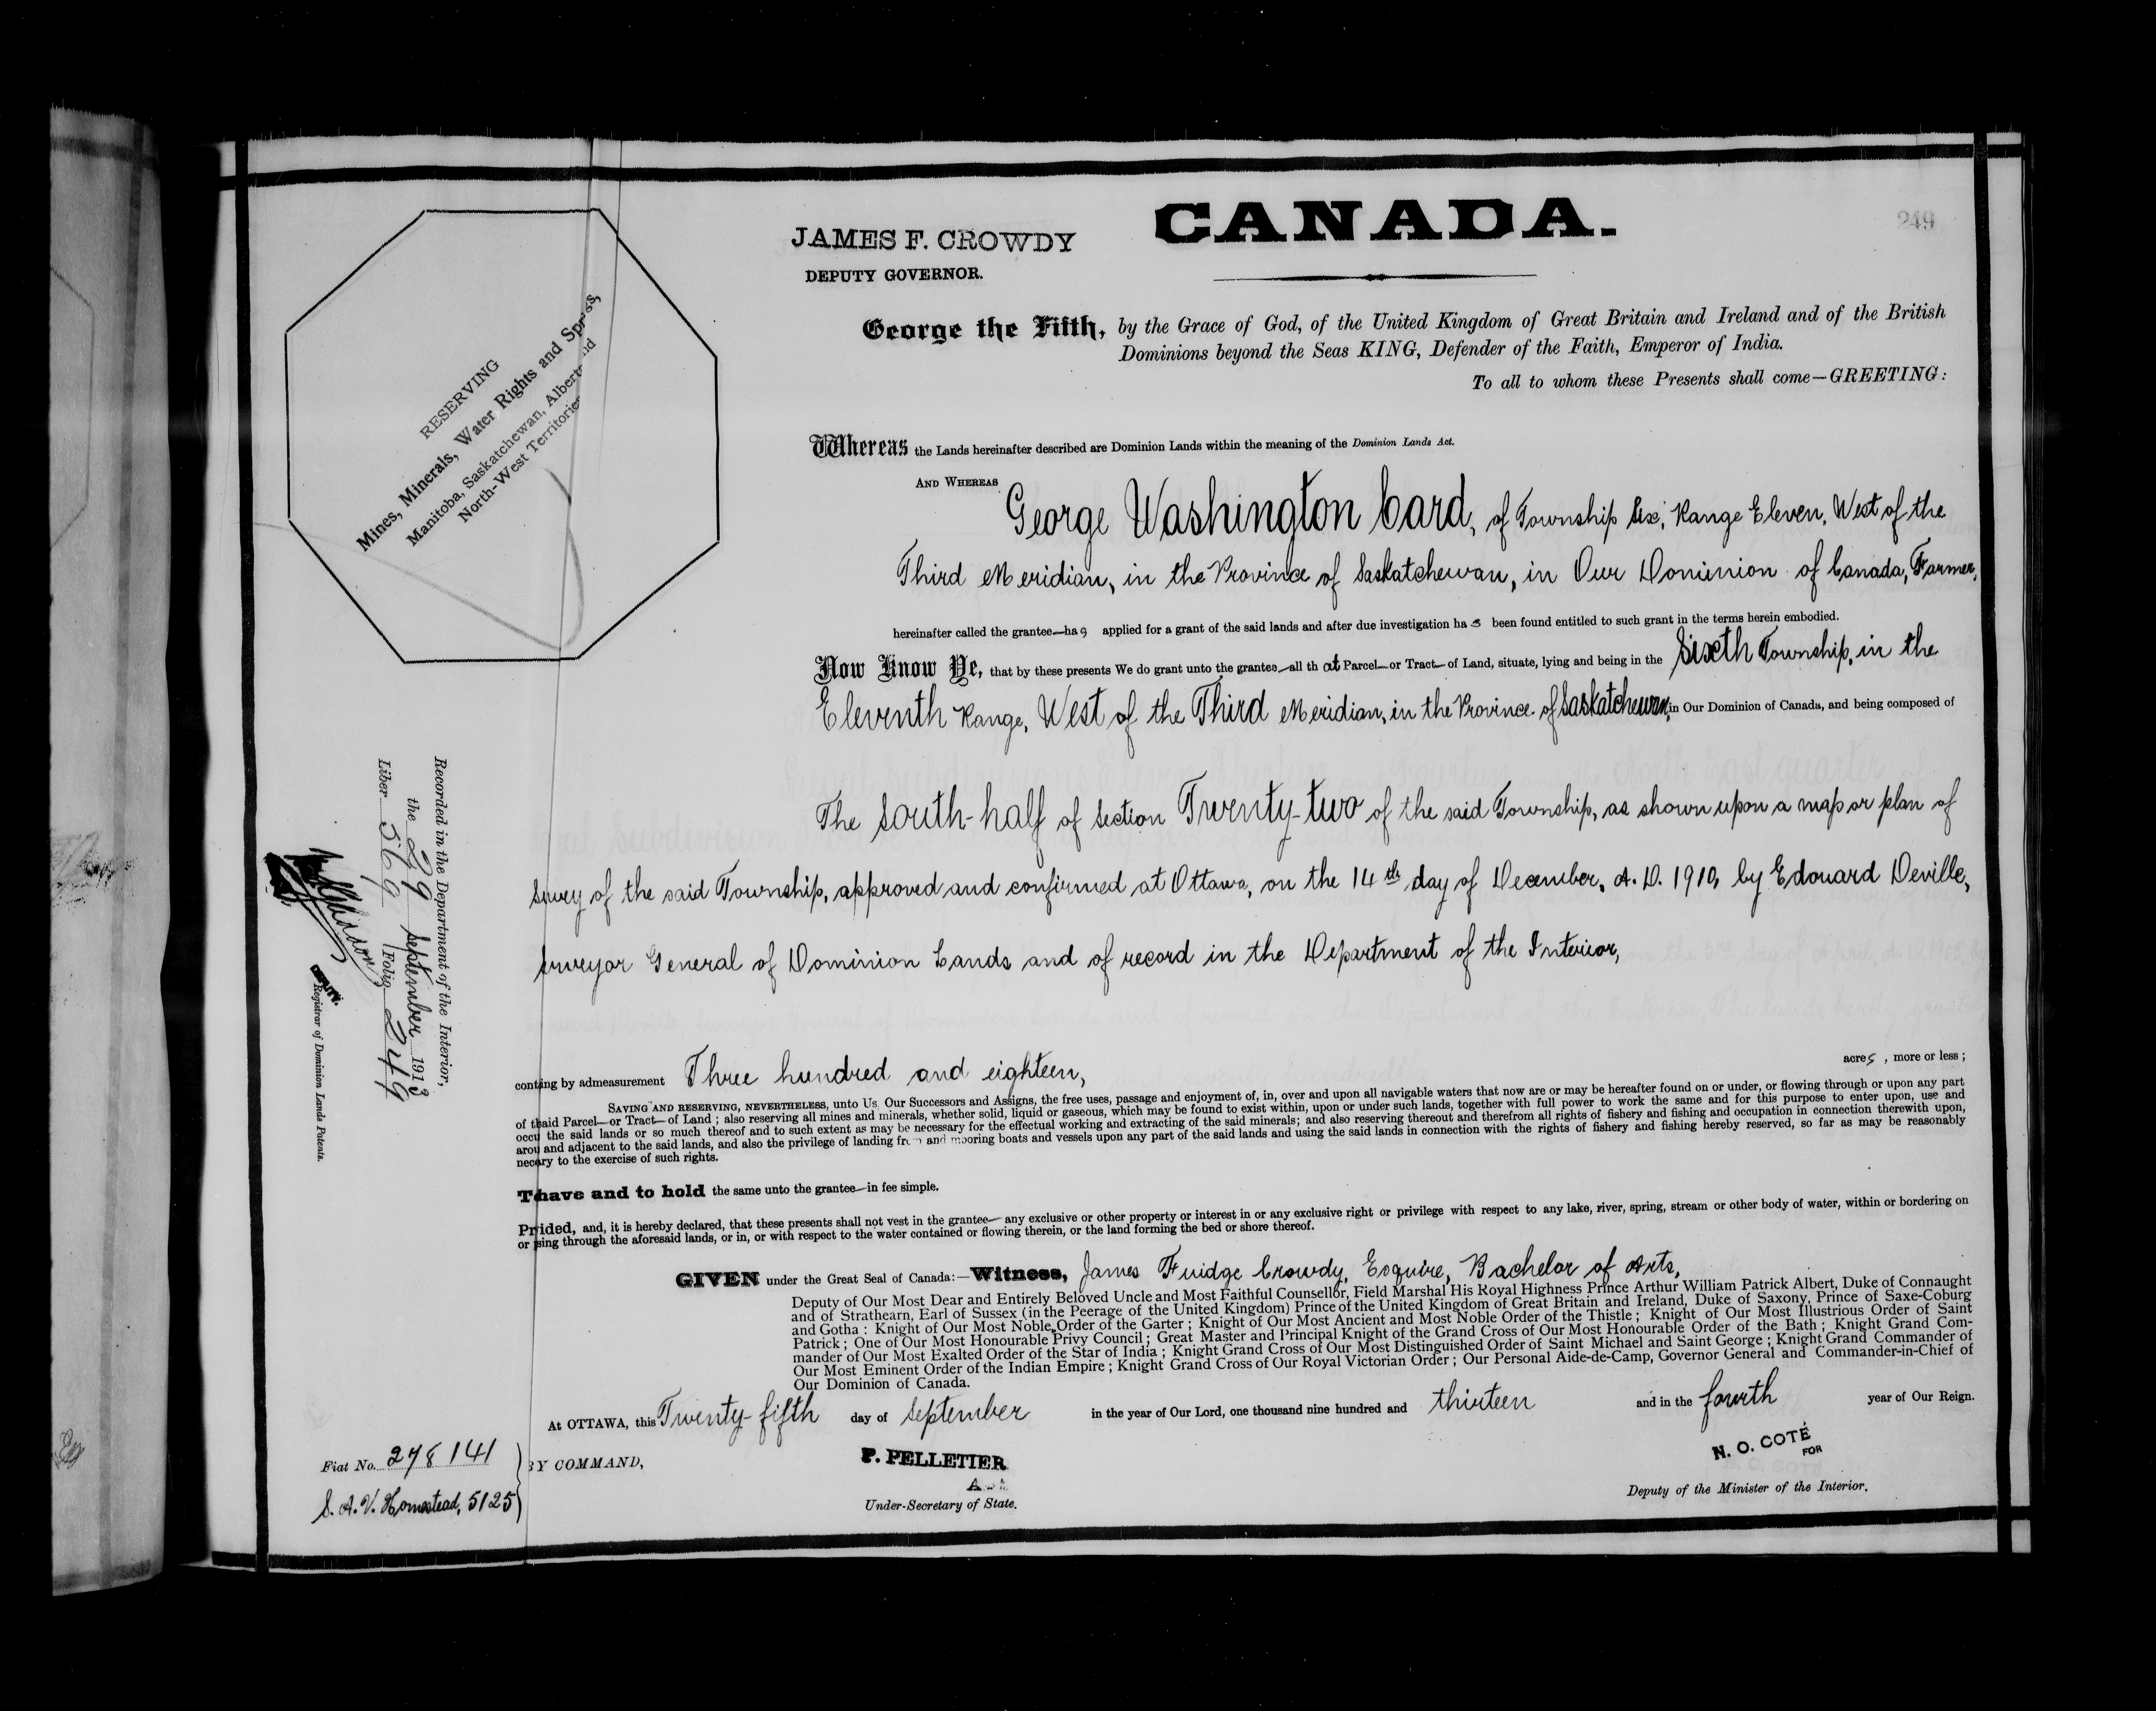 249
CANADA.
JAMES F. CROWDY
DEPUTY GOVERNOR.
George the Fifth, by the Grace of God, of the United Kingdom of Great Britain and Ireland and of the British
Dominions beyond the Seas KING, Defender of the Faith, Emperor of India.
To all to whom these Presents shall come—GREETING:
RESERVING
Mines, Minerals, Water Rights and
Manitoba, Saskatchewan,
North-West
Whereas the Lands hereinafter described are Dominion Lands within the meaning of the Dominion Lands Act.
AND WHEREAS George Washington Card, of Township Six, Range Eleven, West of the
Third Meridian, in the Province of Saskatchewan, in Our Dominion of Canada, Farmer,
hereinafter called the grantee—has applied for a grant of the said lands and after due investigation has been found entitled to such grant in the terms herein embodied.
Now Know Ye, that by these presents We do grant unto the grantee—all that Parcel—or Tract—of Land, situate, lying and being in the Sixth Township, in the
Eleventh Range, West of the Third Meridian, in the Province of Saskatchewan, in Our Dominion of Canada, and being composed of
The South-half of Section Twenty-two of the said Township, as shown upon a map or plan of
Survey of the said Township, approved and confirmed at Ottawa, on the 14th day of December, A.D. 1910, by Edouard Deville,
Surveyor General of Dominion Lands and of record in the Department of the Interior,
conting by admeasurement Three hundred and eighteen, acres, more or less;
SAVING AND RESERVING, NEVERTHELESS, unto Us Our Successors and Assigns, the free uses, passage and enjoyment of, in, over and upon all navigable waters that now are or may be hereafter found on or under, or flowing through or upon any part
of thaid Parcel—or Tract—of Land; also reserving all mines and minerals, whether solid, liquid or gaseous, which may be found to exist within, upon or under such lands, together with full power to work the same and for this purpose to enter upon, use and
occu the said lands or so much thereof and to such extent as may be necessary for the effectual working and extracting of the said minerals; and also reserving thereout and therefrom all rights of fishery and fishing and occupation in connection therewith upon,
arou and adjacent to the said lands, and also the privilege of landing from and mooring boats and vessels upon any part of the said lands and using the said lands in connection with the rights of fishery and fishing hereby reserved, so far as may be reasonably
necery to the exercise of such rights.
Thave and to hold the same unto the grantee—in fee simple.
Prided, and, it is hereby declared, that these presents shall not vest in the grantee— any exclusive or other property or interest in or any exclusive right or privilege with respect to any lake, river, spring, stream or other body of water, within or bordering on
or sing through the aforesaid lands, or in, or with respect to the water contained or flowing therein, or the land forming the bed or shore thereof.
GIVEN under the Great Seal of Canada:—Witness, James Fuidge Crowdy, Esquire, Bachelor of Arts,
Deputy of Our Most Dear and Entirely Beloved Uncle and Most Faithful Counsellor, Field Marshal His Royal Highness Prince Arthur William Patrick Albert, Duke of Connaught
and of Strathearn, Earl of Sussex (in the Peerage of the United Kingdom) Prince of the United Kingdom of Great Britain and Ireland, Duke of Saxony, Prince of Saxe-Coburg
and Gotha: Knight of Our Most Noble Order of the Garter; Knight of Our Most Ancient and Most Noble Order of the Thistle; Knight of Our Most Illustrious Order of Saint
Patrick; One of Our Most Honourable Privy Council; Great Master and Principal Knight of the Grand Cross of Our Most Honourable Order of the Bath; Knight Grand Com-
mander of Our Most Exalted Order of the Star of India; Knight Grand Cross of Our Most Distinguished Order of Saint Michael and Saint George; Knight Grand Commander of
Our Most Eminent Order of the Indian Empire; Knight Grand Cross of Our Royal Victorian Order; Our Personal Aide-de-Camp, Governor General and Commander-in-Chief of
Our Dominion of Canada.
At OTTAWA, this Twenty-fifth day of September in the year of Our Lord, one thousand nine hundred and thirteen and in the fourth year of Our Reign.
BY COMMAND,
P. PELLETIER
Under-Secretary of State.
N. O. COTÉ
FOR
Deputy of the Minister of the Interior.
Fiat No. 278141
S. A. V. Homestead, 5125
Recorded in the Department of the Interior,
the 29 September 1913
Liber 569 Folio 249
DEPUTY.
Registrar of Dominion Lands Patents.